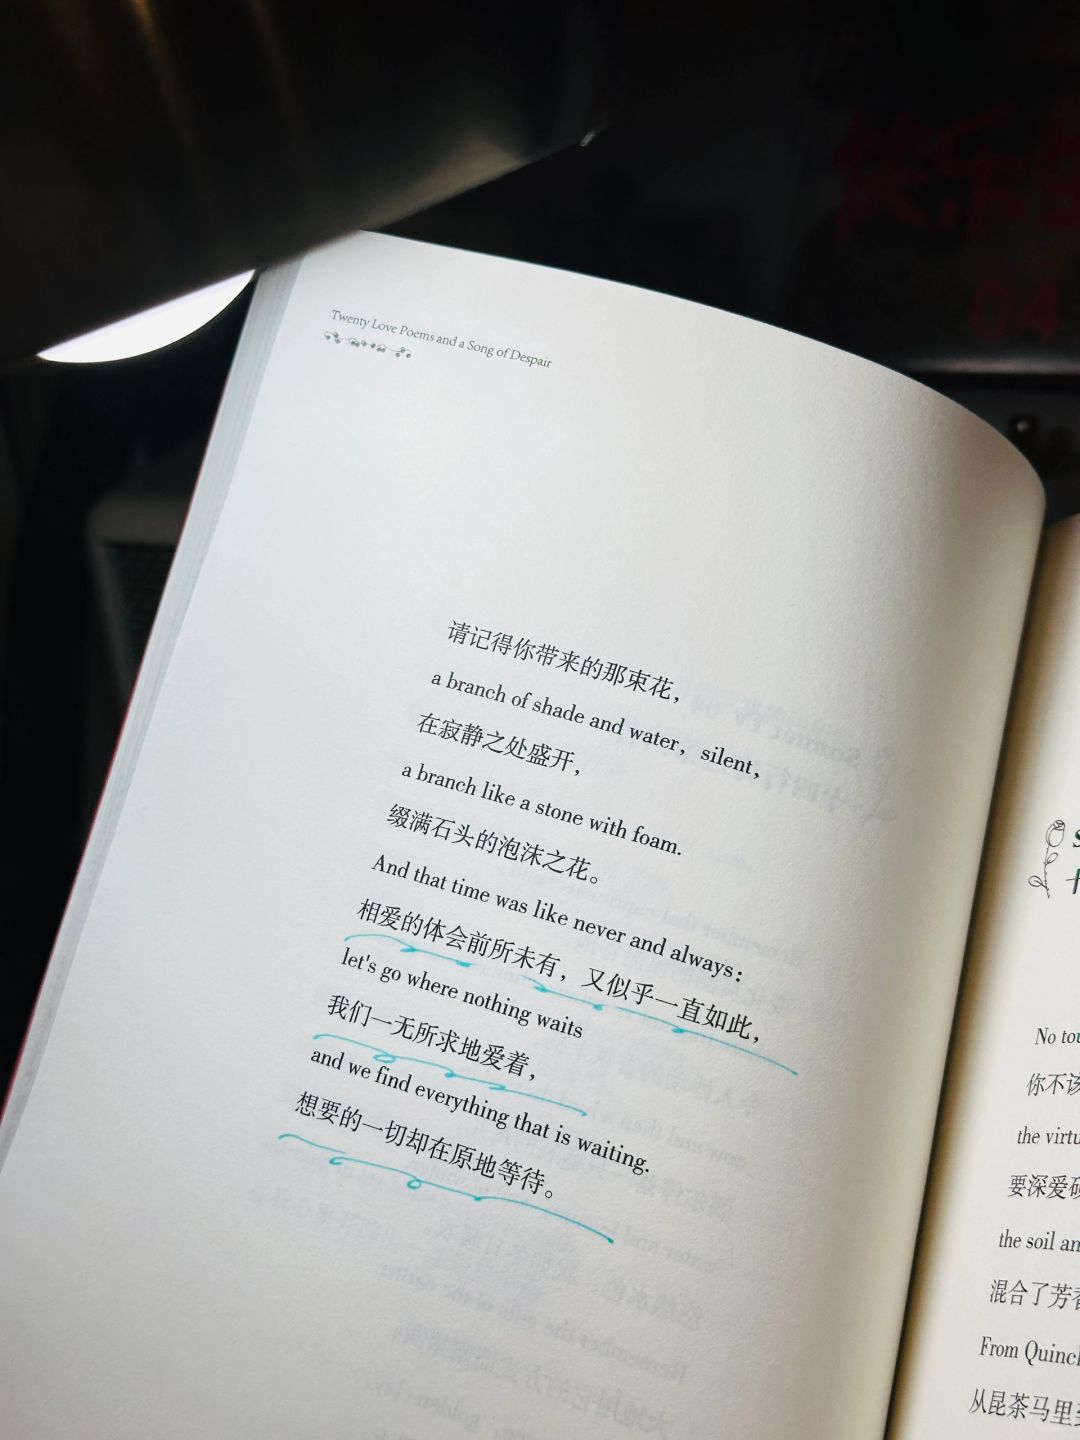 Twenty Love Poems and a Song of Despair
请记得你带来的那束花，
a branch of shade and water, silent,
在寂静之处盛开，
a branch like a stone with foam.
缀满石头的泡沫之花。
And that time was like never and always:
相爱的体会前所未有，又似乎一直如此，
let's go where nothing waits
我们一无所求地爱着，
and we find everything that is waiting.
想要的一切却在原地等待。
No
你不该
the
要深爱
the soil
混合了芳
From
从昆茶马里
快乐
04